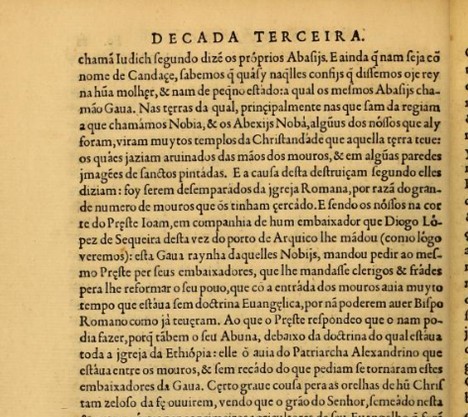 DECADA TERCEIRA.
chamã Iudich segundo dizẽ os próprios Abasijs. E ainda q̃ nam seja cõ
nome de Candaçe, sabemos q̃ quásy naq̃lles confijs q̃ dissemos oje rey
na hũa molhęr, & nam de peq̃no estádo: a qual os mesmos Abasijs cha-
mão Gaua. Nas tęrras da qual, prinçipalmente nas que sam da regiam
a que chamámos Nobia, & os Abexijs Nobá, algũus dos nóssos que aly
foram, viram muytos templos da Christandáde que aquella tęrra teue:
os quáes jaziam aruinados das mãos dos mouros, & em algũas paredes
jmagẽes de sanctos pintádas. E a causa desta destruiçam segundo elles
diziam: foy serem desemparádos da jgreja Romana, por razã do gran-
de numero de mouros que ós tinham çercádo. E sendo os nóssos na cor
te do Pręste Ioam, em companhia de hum embaixador que Diogo Ló-
pez de Sequeira desta vez do porto de Arquico lhe mãdou (como lógo
veremos): esta Gaua raynha daquelles Nobijs, mandou pedir ao mes-
mo Pręste per seus embaixadores, que lhe mandasse clerigos & frádes
pera lhe reformar o seu pouo, que cõ a entráda dos mouros auia muyto
tempo que estáua sem doctrina Euangęlica, por nã poderem auer Bispo
Romano como já teuęram. Ao que o Pręste respondeo que o nam po-
dia fazer, porq̃ tãbem o seu Abuna, debaixo da doctrina do qual estáua
toda a jgreja da Ethiópia: elle ó auia do Patriarcha Alexandrino que
estáua entre os mouros, & sem recádo do que pediam se tornaram estes
embaixadores da Gaua. Çerto graue cousa pera as orelhas de hũ Chris
tam zeloso da fę ouuirem, vendo que o grão do Senhor, semeádo nesta